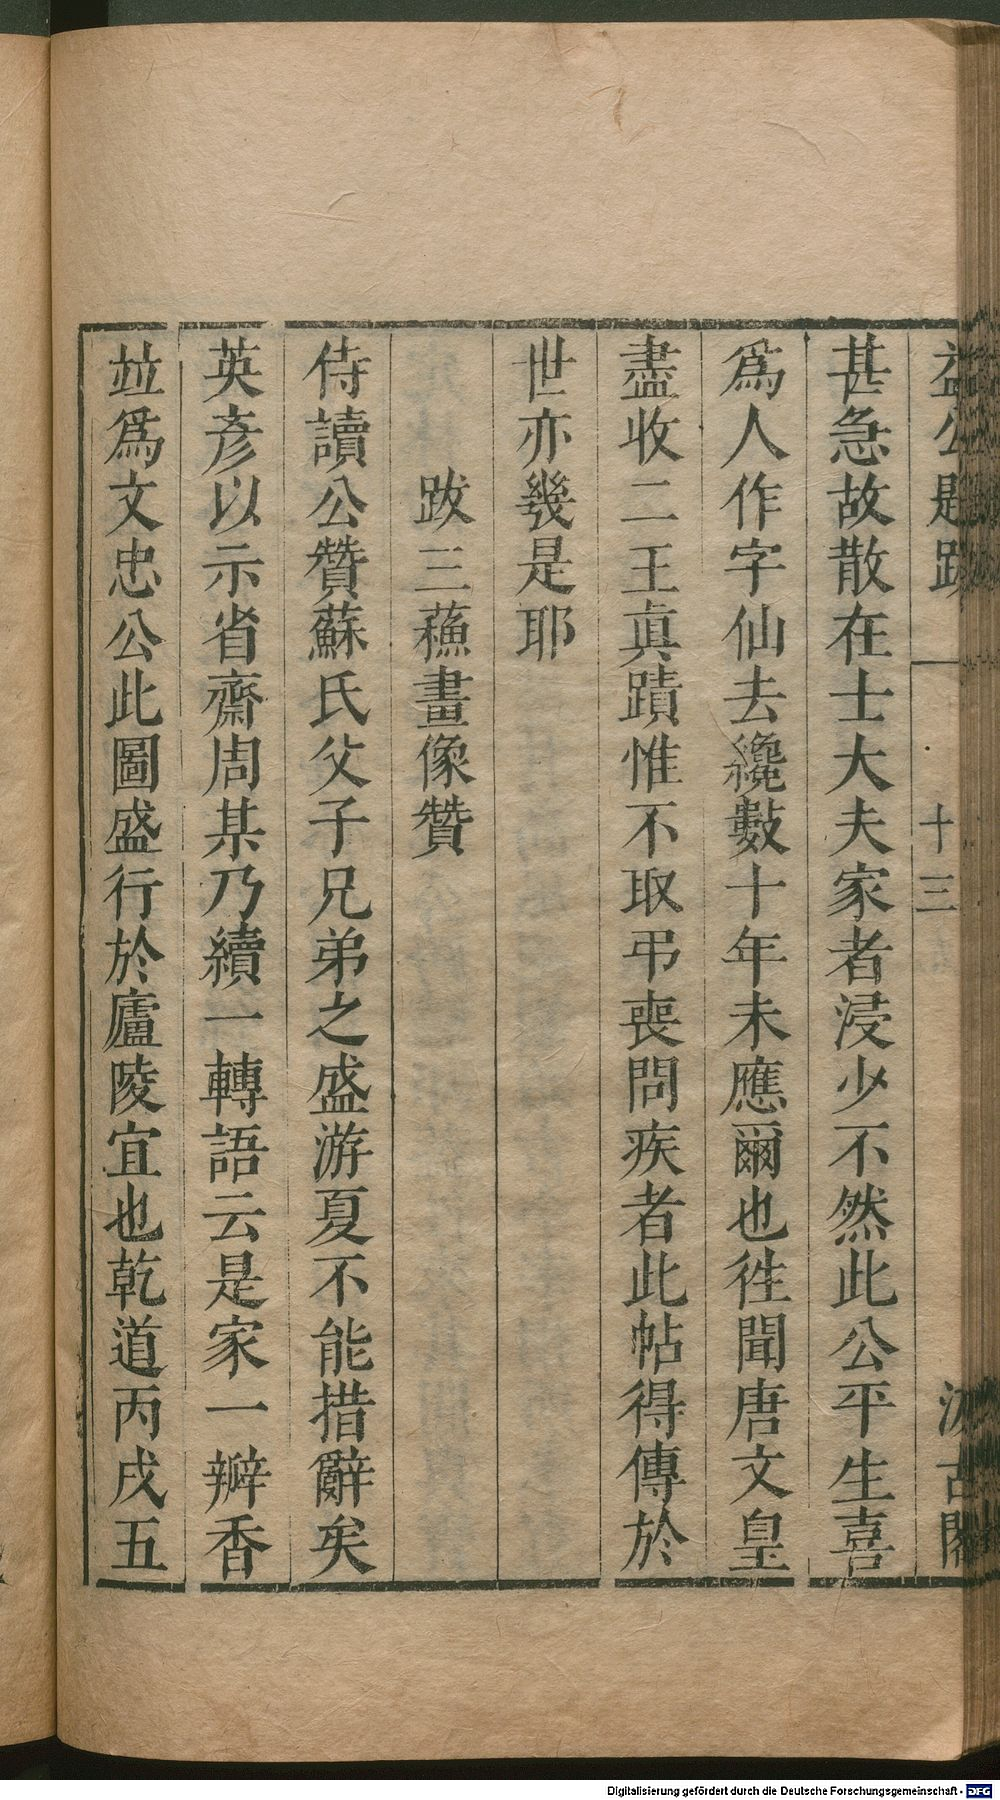 益公題跋 十三 汲古閣
甚急故散在士大夫家者浸少不然此公平生喜
爲人作字仙去纔數十年未應爾也徃聞唐文皇
盡收二王真蹟惟不取弔喪問疾者此帖得傳於
世亦幾是耶
跋三蘓畫像贊
侍讀公贊蘇氏父子兄弟之盛游夏不能措辭矣
英彥以示省齋周某乃續一轉語云是家一瓣香
竝爲文忠公此圖盛行於廬陵宜也乾道丙戌五
Digitalisierung gefördert durch die Deutsche Forschungsgemeinschaft - DFG